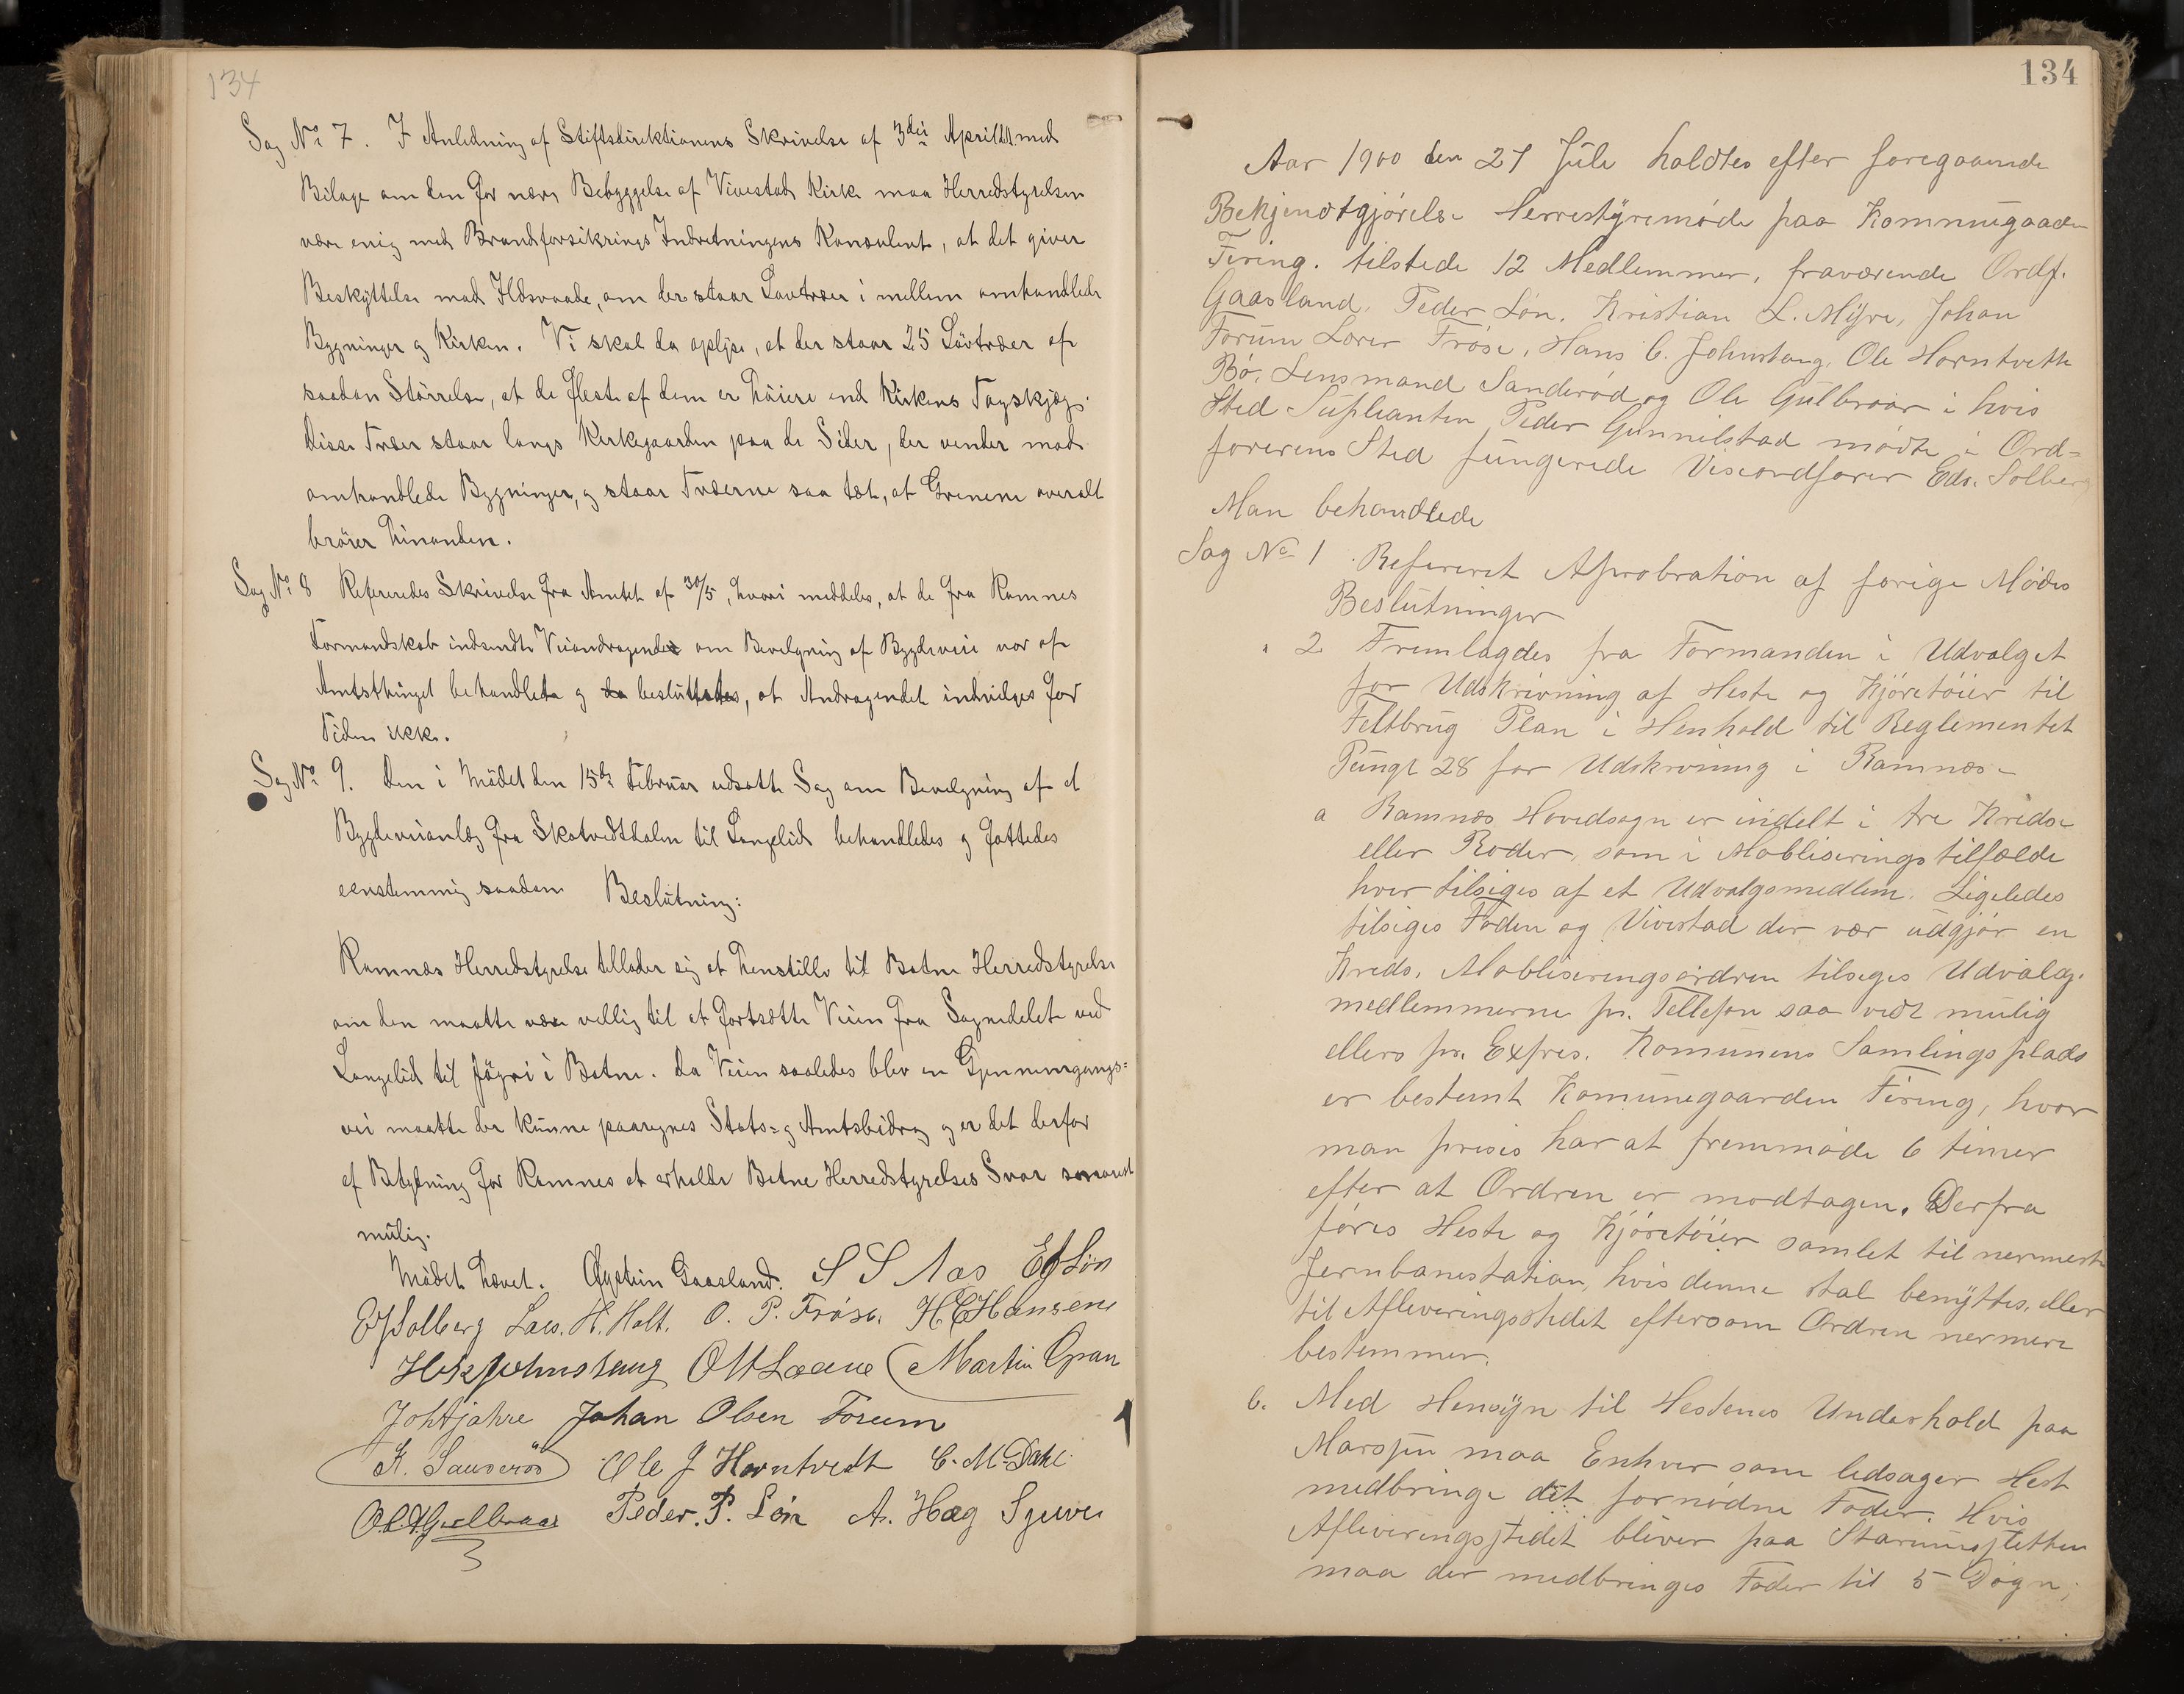 134
Sag No 7. I Anledning af Stiftsdirektionens Skrivelse af 3die April dt. med
Bilage om den for nære Bebyggelse af Vivestad Kirke maa Herredstyrelsen
være enig med Brandforsikrings Indretningens Konsulent, at det giver
Beskyttelse mod Ildsvaade, om der staar Løvtræer i mellem omhandlede
Bygninger og Kirken. Vi skal da oplyse, at der staar 25 Lövtræer af
saadan Störrelse, at de fleste af dem er höiere end Kirkens Tagskjæg.
Disse Træer staar langs Kirkegaarden paa de Sider, der vender mod
omhandlede Bygninger, og staar Træerne saa tæt, at Grenene overalt
bröier hinanden.
Sag No 8 Refereredes Skrivelse fra Amtet af 30/5, hvori meddeles, at de fra Ramnes
Formandskab indsendte Veiandragende om Bevilgning af Bygdeveie var af
Amtsthinget behandlede og da besluttedes, at Andragendet indvilges for
Tiden ikke.
Sag No 9. Den i Mödet den 15de Februar udsatte Sag om Bevilgning af et
Bygdeveianlæg fra Skotvedthalen til Langelid behandledes og fattedes
eenstemmig saadan Beslutning:
Ramnæs Herredstyrelse tillader sig at henstille til Botne Herredstyrelse
om den maatte være villig til at fortsætte Veien fra Sognedelet ved
Langelid til Jögri i Botne. Da Veien saaledes blev en Gjennemgangs=
vei maatte der kunne paaregnes Stats= og Amtsbidrag og er det derfor
af Betydning for Ramnes at erholde Botne Herredstyrelses Svar snarest
mulig.
Mödet hævet. Øystein Gaasland. S S Aas E J Lön
E Solberg Lars. H. Holt. O. P. Frøse. H C Hansen
H C Johnstang O M Laane Martin Gran
Joh Fjahre Johan Olsen Forum
K. Sanderöd Ole J Horntvedt C. M. Dahl
Ol. A Gulbraar Peder. P. Løn A. Hæg
134
Aar 1900 den 27 Juli holdtes efter foregaaende
Bekjendtgjörelse Herrestyremöde paa Kommnegaaden
Firing. tilstede 12 Medlemmer, fraværende Ordf.
Gaasland, Peder Løn, Kristian L. Myre, Johan
Forum Lærer Frøse, Hans C. Johnstang, Ole Horntvett
Bø, Lensmand Sanderød og Ole Gulbraar i hvis
Sted Supleanten Peder Gunnilstad mødte i Ord=
førerens Sted fungerede Viseordfører Edv. Solberg
Man behandlede
Sag No 1. Refereret Aprobration af forige Mødes
Beslutninger
" 2 Fremlagdes fra Formanden i Udvalget
for Udskrivning af Heste og Kjøretøier til
Feltbrug Plan i Henhold til Reglementet
Pungt 28 for Udskrivning i Ramnæs
a Ramnæs Hovedsogn er indelt i tre Kredse
eller Roder, som i Mobliseringstilfælde
hver tilsiges af et Udvalgsmedlem. Ligeledes
tilsiges Foden og Vivestad der vær udgjør en
Kreds. Mobliseringsordren tilsiges Udvalg.
medlemmerne pr. Tellefon saa vidt mulig
ellers pr. Expres. Komunens Samlingsplads
er bestemt Komunegaarden Firing, hvor
man presis har at fremmøde 6 timer
efter at Ordren er modtagen. Derfra
føres Heste og Kjøretøier samlet til nermeste
Jernbanestation, hvis denne skal benyttes, eller
til Afleveringsstedet eftersom Ordren nermere
bestemmer.
b. Med Hensyn til Hestenes Underhold paa
Marsjen maa Enhver som ledsager Hest
medbringe det fornødne Foder. Hvis
Afleveringsstedet bliver paa Starumsletten
maa der medbringes Foder til 5 Døgn,